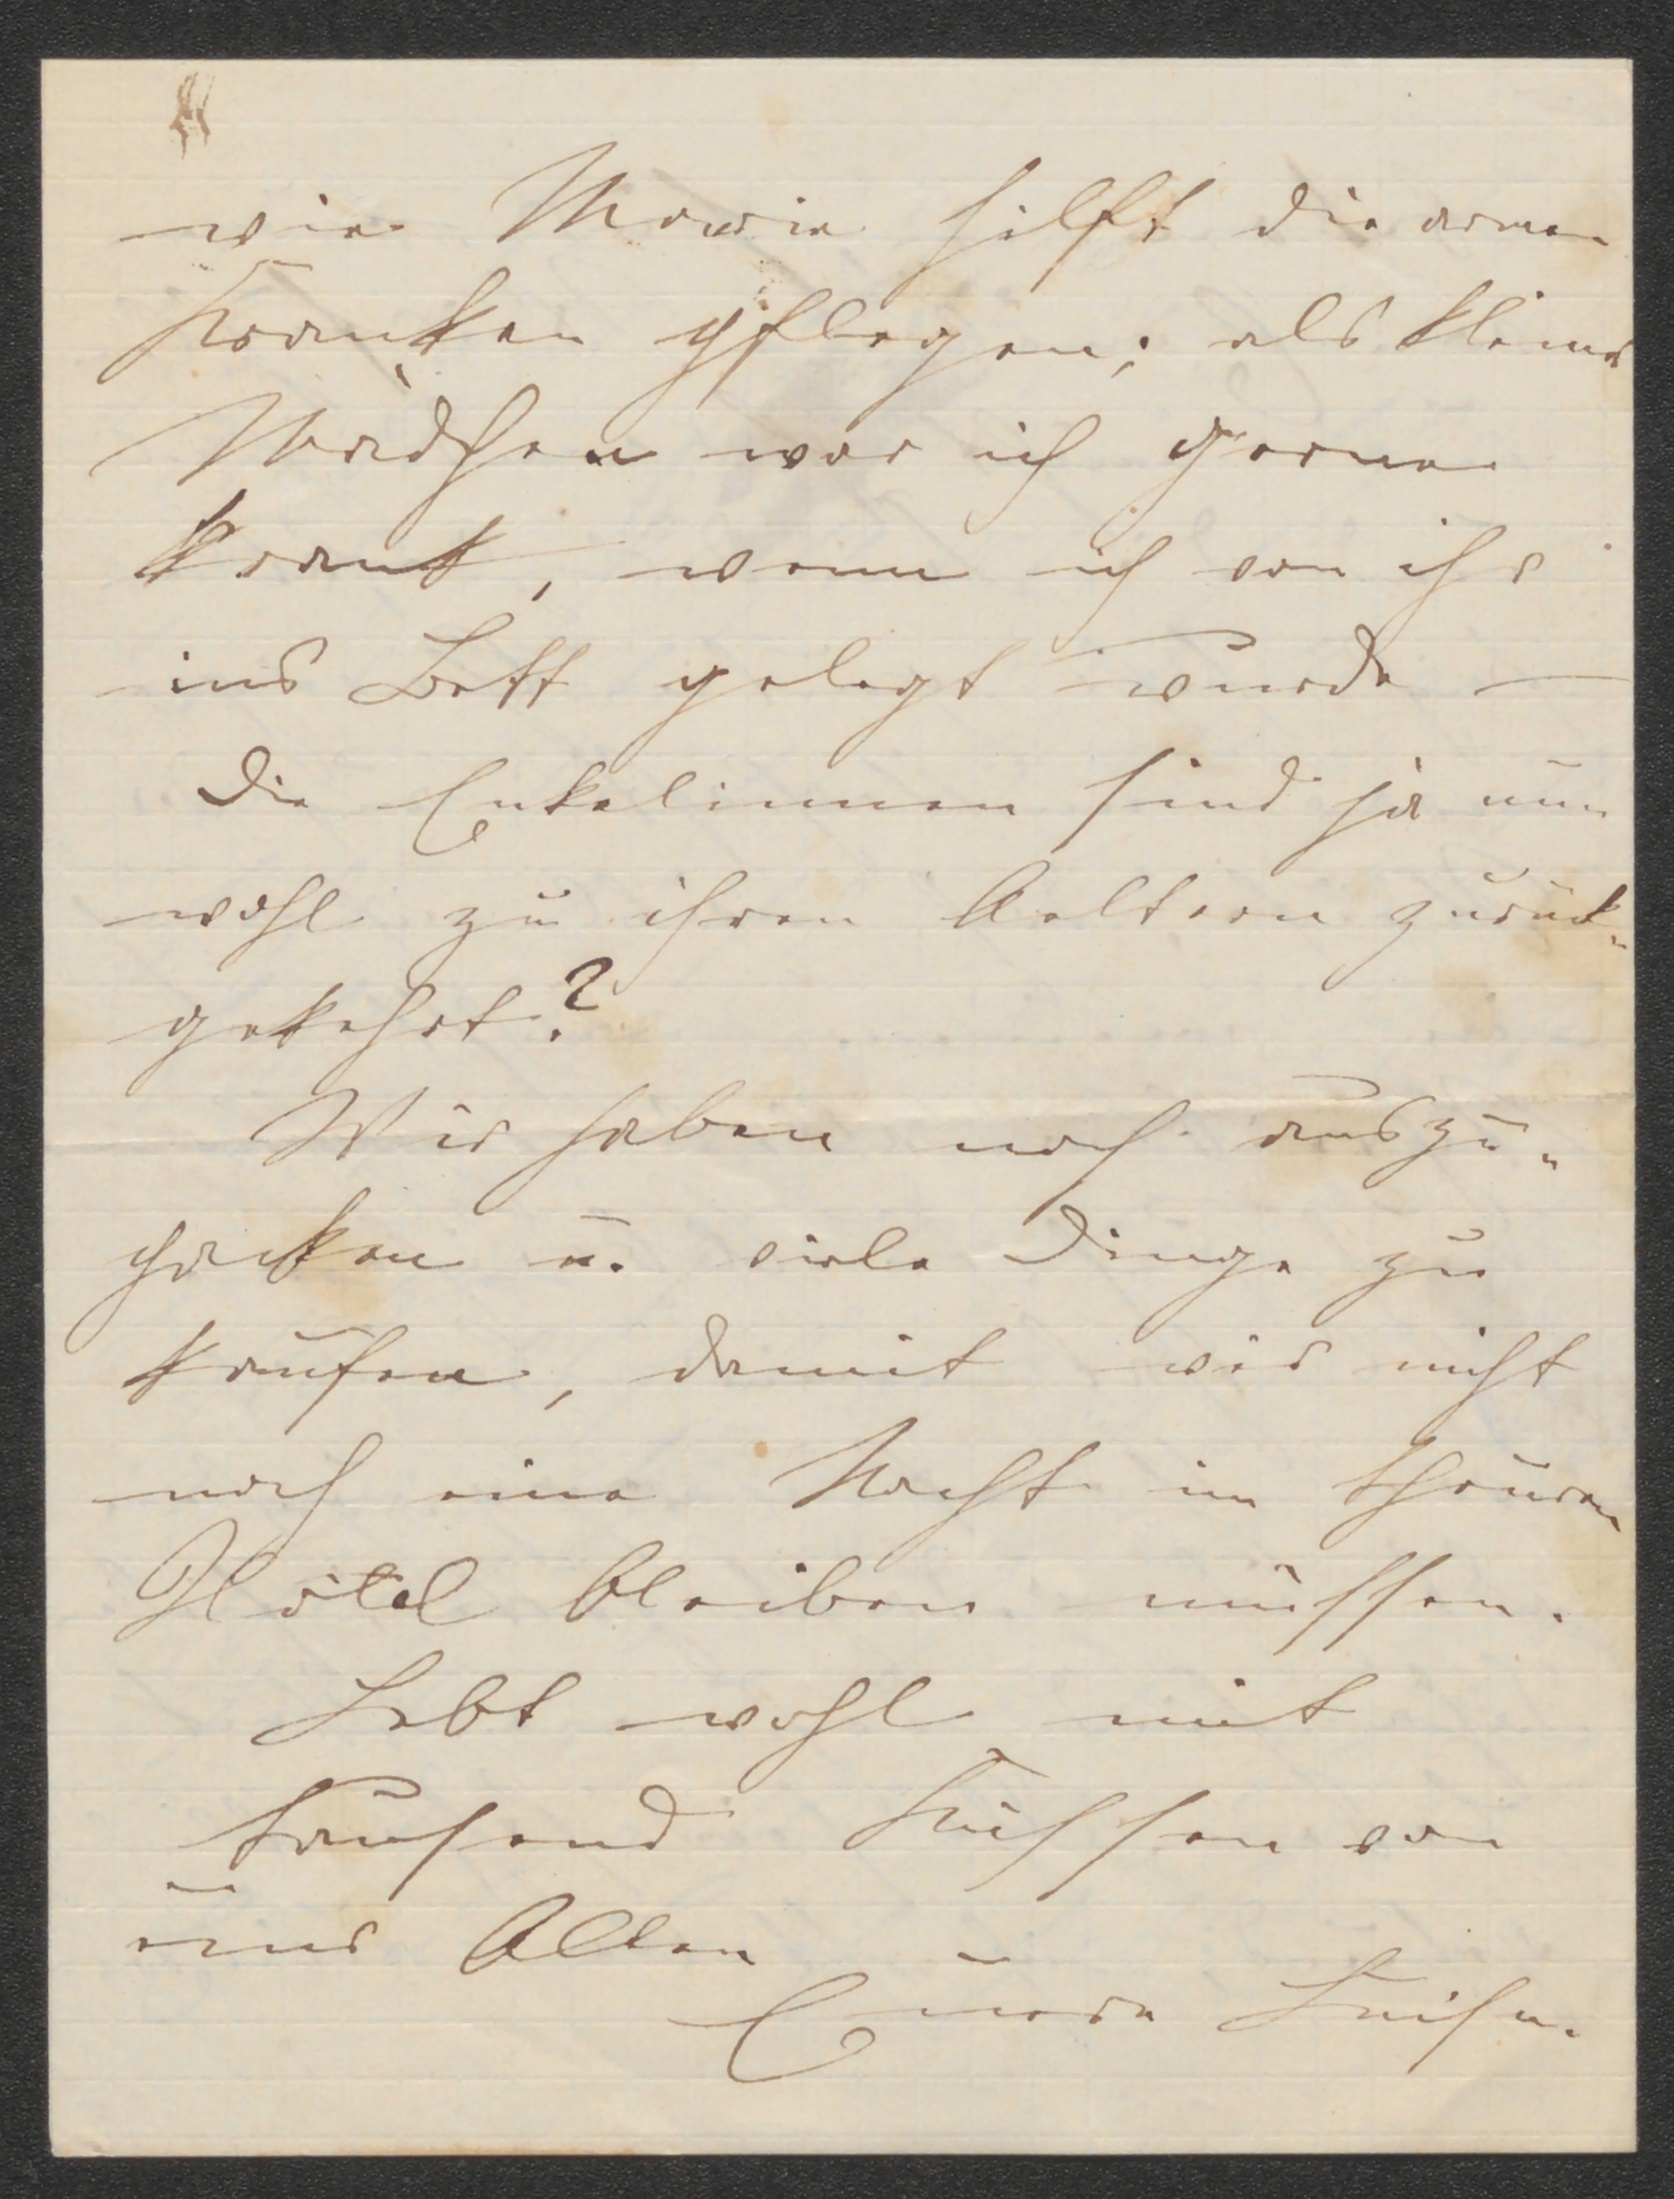 wie Marie hilft die armen
Kranken pflegen; als kleines
Mädchen war ich gerne
krank, wenn ich von ihr
ins Bett gelegt wurde —
Die Enkelinnen sind ja nun
wohl zu ihren Aeltern zurück-
gekehrt?
Wir haben noch auszu-
packen u. viele Dinge zu
kaufen, damit wir nicht
noch eine Nacht im theuren
Hôtel bleiben müssen.
Lebt wohl mit
tausend Küssen von
uns Allen
Eurer Luise.